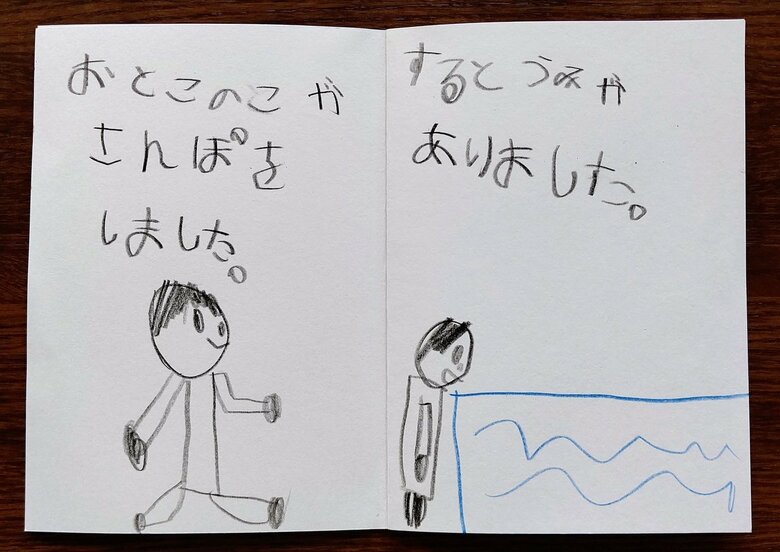 おとこのこが
さんぽを
しました。
するとうみが
ありました。